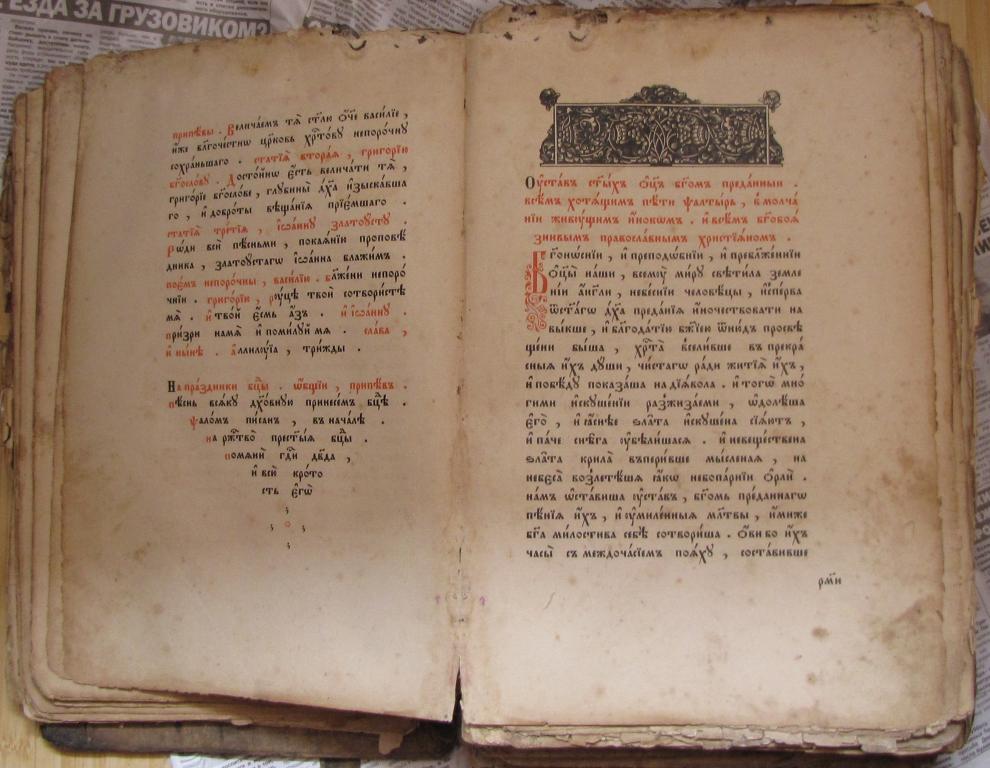 ЕЗДА ЗА ГРУЗОВИКОМ?
припѣвы . Величаемъ тѧ̀ ст҃лю о҆́ч҃е васи́лїе ,
и҆́же бл҃гоче́стнѡ цр҃ковь хрⷭ҇то́ву непоро́чну
сохра́ньшаго . статїѧ̀ втора́ѧ , григо́рїю
бг҃осло́ву . Досто́йнѡ є҆́сть велича́ти тѧ̀ ,
григо́рїе бг҃осло́ве , глубины̀ дх҃а и҆зыска́вша
го , и҆ добро́ты вѣща́нїѧ прїе́мшаго .
статїѧ̀ тре́тїѧ , і҆ѡа́нну златоу́сту .
Ро́ди всѝ пѣ́сньми , покаѧ́нїѧ проповѣ́
дника , златоу́стаго і҆ѡа́нна бл҃жи́мъ .
пое́мъ непоро́чны , васи́лїю . блаже́ни непоро́
чнїи . григо́рїю , ру́цѣ твоѝ сотвори́стѣ
мѧ̀ . и҆ тво́й є҆́смь а҆́зъ . и҆ і҆ѡа́нну .
при́зри на мѧ̀ и҆ поми́луй мѧ . сла́ва ,
и҆ ны́нѣ . а҆ллилу́їа , три́жды .
На пра́здники бц҃ы . ѻ҆́бщїи , припѣ́въ .
пѣ́снь всѧ́ку дх҃о́вную принесе́мъ бц҃ѣ .
ѱало́мъ пи́санъ , въ нача́лѣ .
на ржⷭ҇тво̀ прест҃ы́ѧ бц҃ы .
помѧнѝ гдⷭ҇и дв҃да ,
и҆ всѝ кро́то
сть є҆гѡ̀
Оу҆ста́въ ст҃ы́хъ ѻ҆ц҃ъ бг҃омъ преда́нныи .
всѣ́мъ хотѧ́щимъ пѣ́ти ѱалты́рь , в молча́
нїи живу́щимъ и҆́нокѡмъ . и҆ всѣ́мъ бг҃обоѧ
зни́вымъ правосла́внымъ христїѧ́номъ .
Бг҃оно́снїи , и҆ преподо́бнїи , и҆ пребл҃же́ннїи
ѻ҆ц҃ы̀ на́ши , всему̀ ми́ру свѣти́ла земле
нїи а҆́нгли , небе́снїи человѣ́цы , и҆спе́рва
ѿ ст҃а́гѡ дх҃а преда́нїѧ и҆́ночествовати на
вы́кше , и҆ бл҃года́тїю бж҃їею ѿню́дъ просвѣ
ще́ни бы́ша , хрⷭ҇та̀ всели́вше въ прекра́
сныѧ и҆́хъ ду́ши , чи́стагѡ ра́ди житїѧ̀ и҆́хъ ,
и҆ побѣ́ду показа́ша на дїѧ́вола . и҆ того̀ мно́
гими и҆скуше́нїи разжиза́еми , ѡ҆долѣ́ша
є҆го̀ , и҆ ꙗ҆́снѣе ѕла́та и҆скуше́на сїѧ́ютъ ,
и҆ па́че снѣ́га ᲂу҆бѣли́шасѧ . и҆ невеще́ствена
ѕла́та крила̀ въпери́вше мы́сленаѧ , на
небеса̀ возлетѣ́ша ꙗ҆́кѡ небопа́рнїи ѻ҆рлѝ .
на́мъ ѡ҆ста́виша ᲂу҆ста́въ , бг҃омъ преда́ннагѡ
пѣ́нїѧ и҆́хъ , и҆ ᲂу҆миле́нныѧ мл҃твы , и҆́миже
бг҃а ми́лостива себѣ̀ сотвори́ша . ѻ҆́ви бо и҆́хъ
часы̀ съ междоча́сїемъ поѧ́ху , соста́вивше
рм҃и